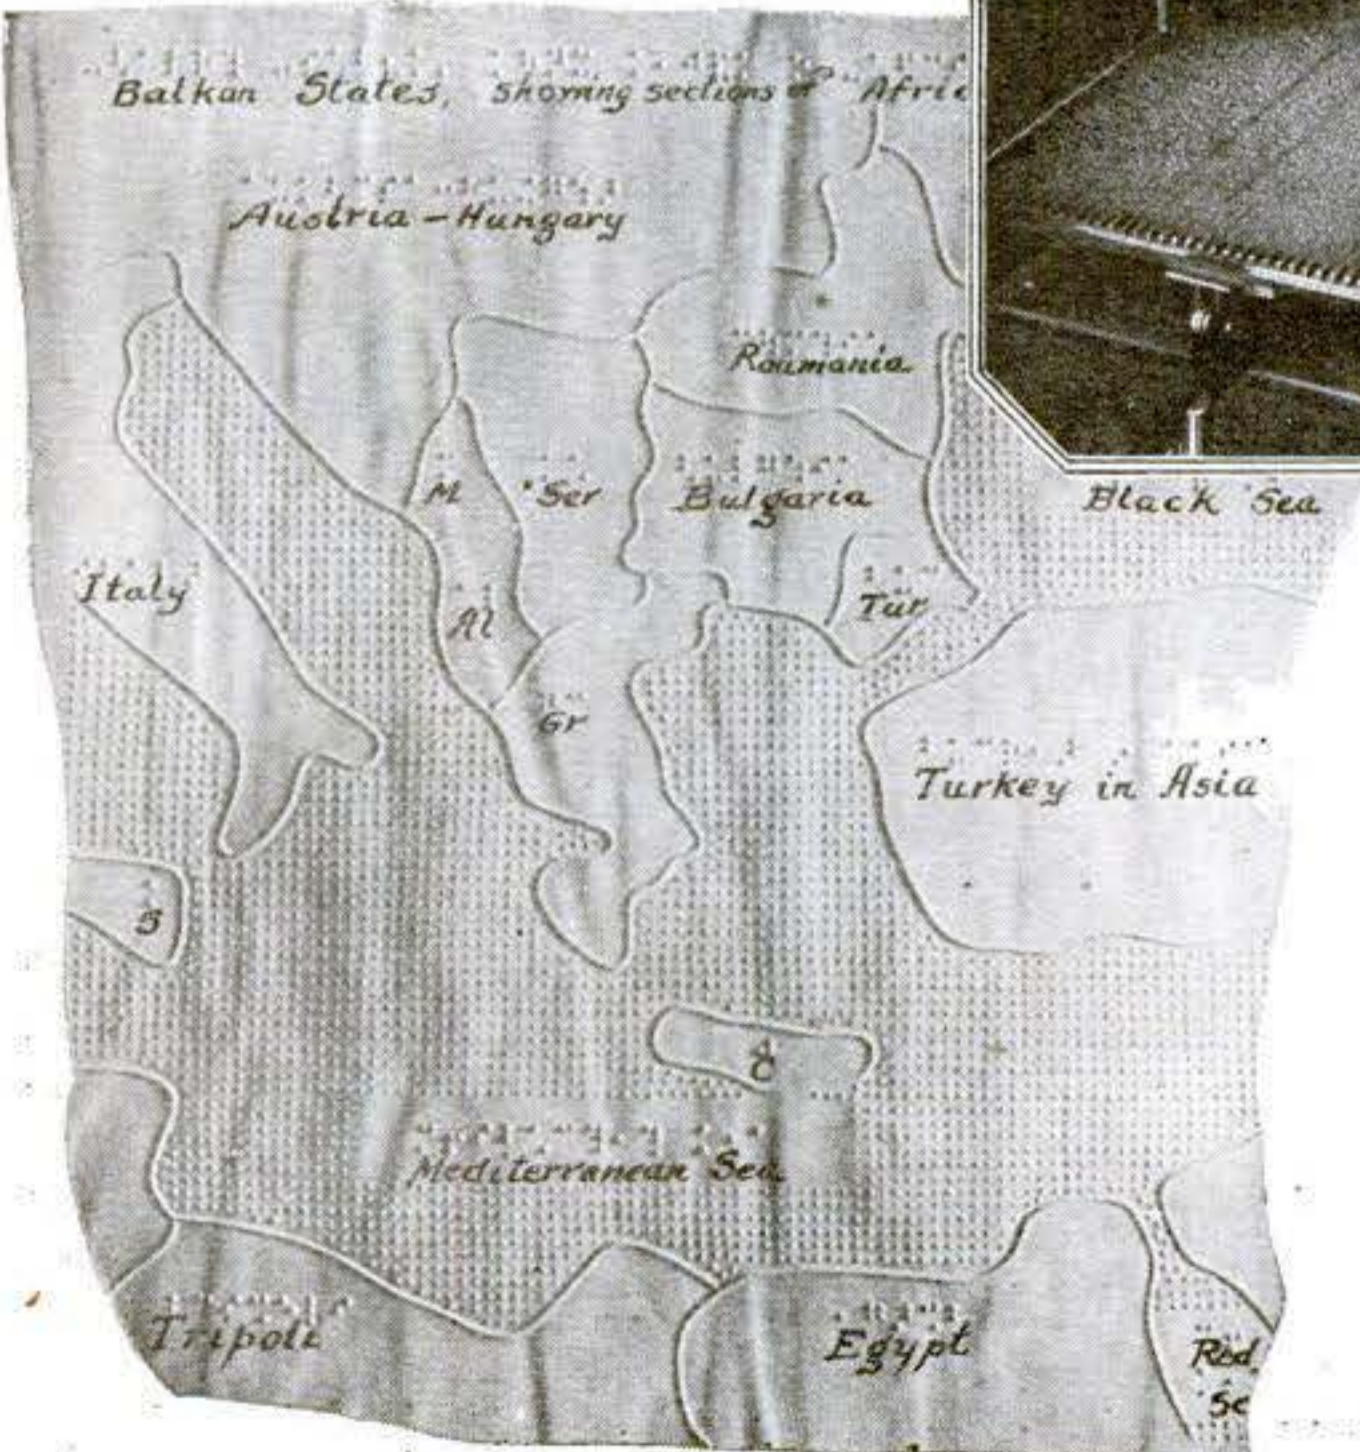 Balkan States, showing sections of Afric
Austria - Hungary
Roumania
M
Ser
Bulgaria
Black Sea
Italy
Al
Tur
Gr
Turkey in Asia
S
C
Mediterranean Sea
Tripoli
Egypt
Red
Se